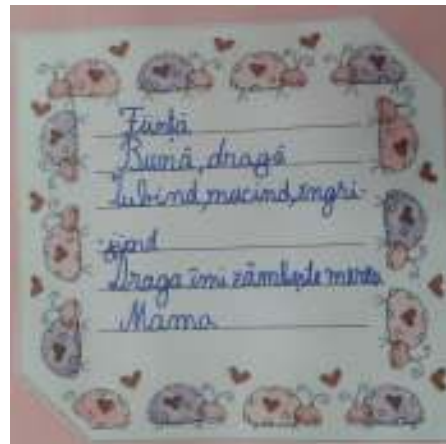 Ființă
Bună, dragă
Iubind, muncind, îngri-
jind
Draga îmi zâmbește mereu
Mama